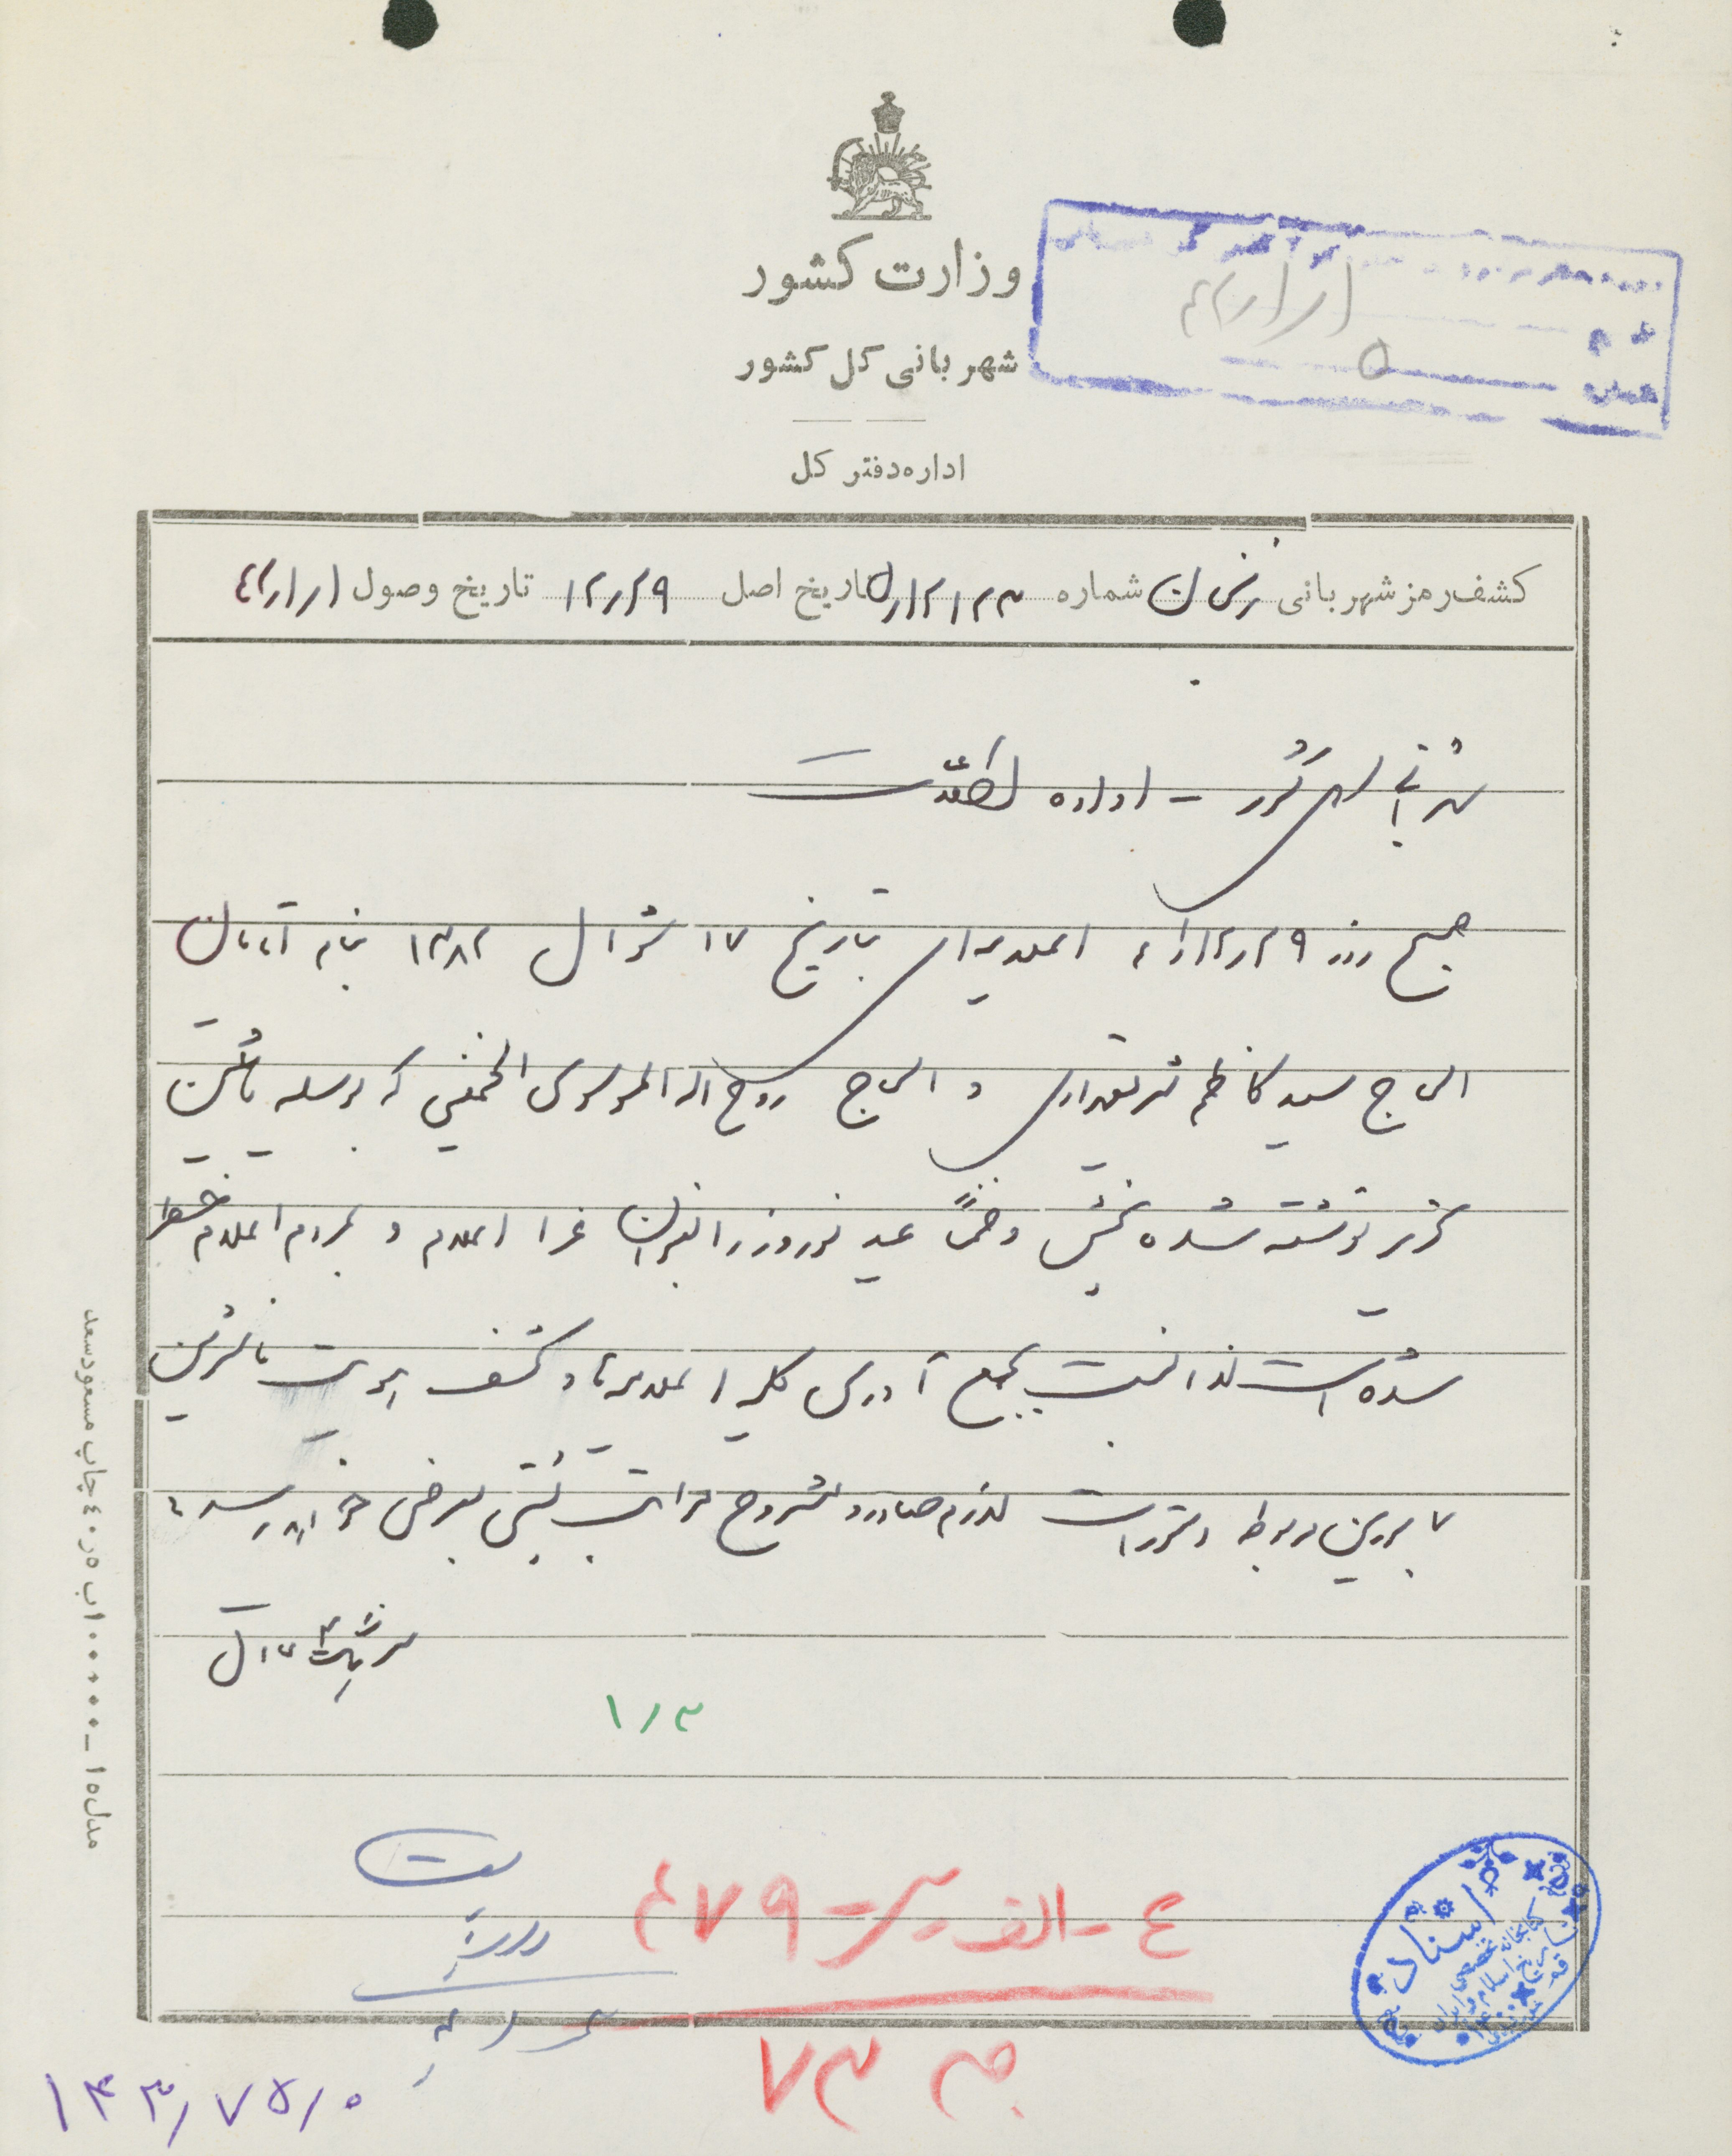 وزارت کشور
شهربانی کل کشور
اداره دفتر کل
کشف رمز شهربانی شماره تاریخ اصل ۱۲/۲۹ تاریخ وصول ۴۲/۱/۱
شهربانی کل کشور - اداره اطلاعات
صبح روز ۴۱/۱۲/۲۹ اعلامیه‌ای بتاریخ ۱۷ شوال ۱۳۸۲ بنام آقایان
الحاج سید کاظم شریعتمداری و الحاج روح اله الموسوی الخمینی که بوسیله ماشین
تحریر نوشته شده پخش و ضمناً عید نوروز را بعنوان عزا اعلام و بمردم اعلام خطر
شده است لذا نسبت بجمع آوری کلیه اعلامیه‌ها و کشف هویت ناشرین
بمامورین مربوطه دستورات لازم صادر و مشروح مراتب پستی بعرض خواهد رسید
۱/۳
۴ - الف ۴۷۹
۷۳
۱۴۳/۷۵/۰
اسناد
کتابخانه تخصصی
تاریخ اسلام و ایران
قم
مدل ۱۵ - ۱۰۰۰۰۰ ب ۴۰/۵ چاپ مسعود سعد